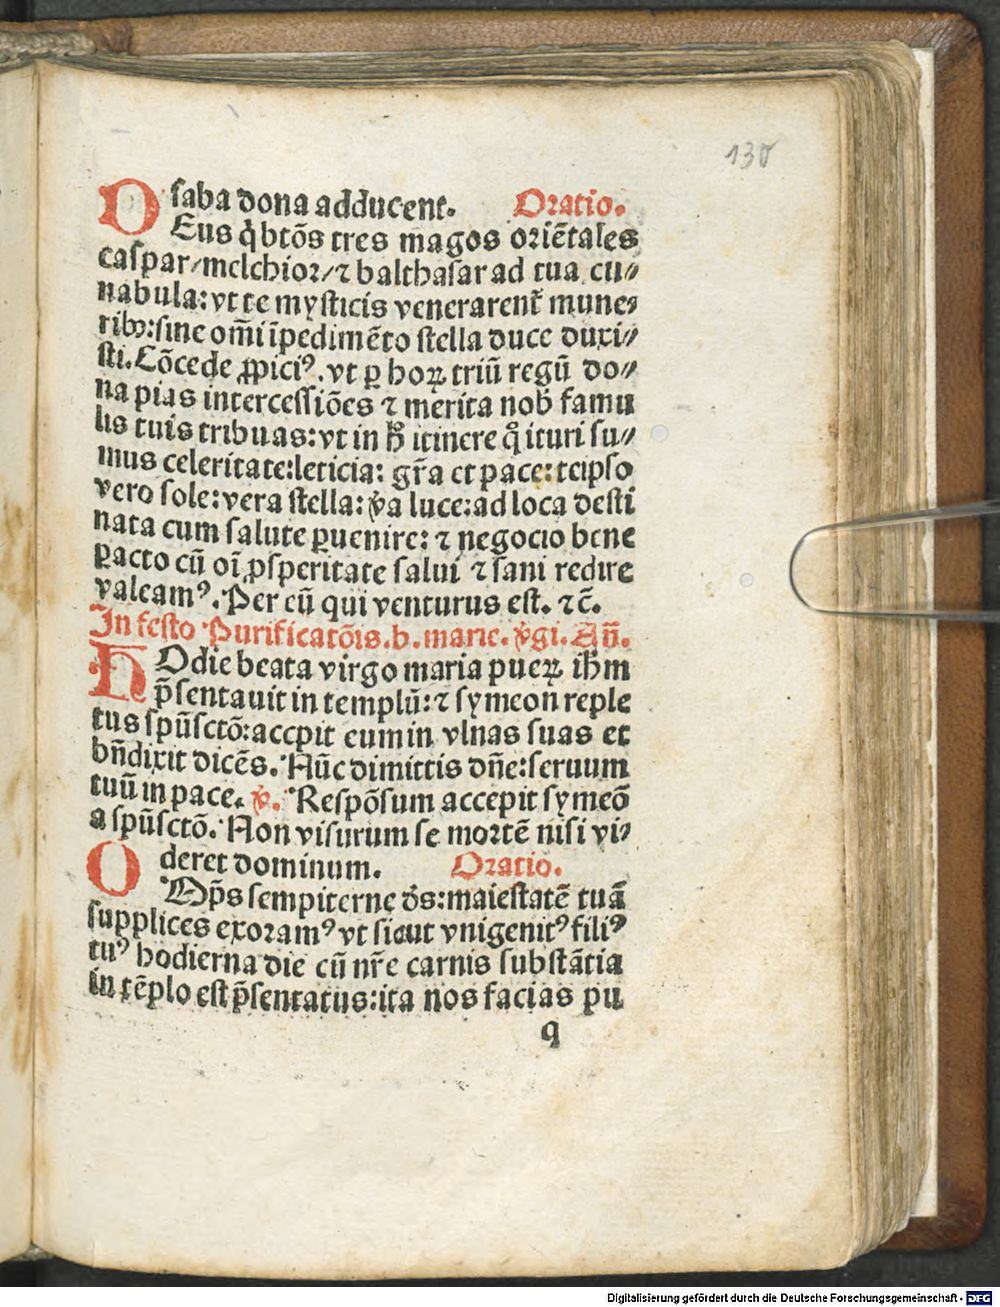 130
saba dona adducent. Oratio.
DEus q̇btōs tres magos oriētales
caspar/melchior/⁊ balthasar ad tua cu⸗
nabula:vt te mysticis venerarent᷑ mune⸗
ribꝰ:sine om̄i īpedimēto stella duce duxi⸗
sti. Cōcede ꝓpiciꝰ. vt ꝑ hoꝝ triū regū do⸗
na pias intercessiōes ⁊ merita nob̄ famu
lis tuis tribuas:vt in h̄ itinere q̊ ituri su⸗
mus celeritate:leticia: gr̄a et pace: teipso
vero sole: vera stella: v̓a luce: ad loca desti
nata cum salute ꝑuenire: ⁊ negocio bene
ꝑacto cū oī ꝓsperitate salui ⁊ sani redire
valeamꝰ. Per eū qui venturus est. ⁊c̄.
In festo Purificatōis. b. marie. v̓gi. An̄.
HOdie beata virgo maria pueꝝ ih̄m
p̄sentauit in templū: ⁊ symeon reple
tus spūsctō: accepit eum in vlnas suas et
bn̄dixit dicēs. Nūc dimittis dn̄e: seruum
tuū in pace. ℣. Respōsum accepit symeō
a spūsctō. Non visurum se mortē nisi vi⸗
deret dominum. Oratio.
OMp̄s sempiterne ds̄: maiestatē tuā
supplices exoramꝰ vt sicut vnigenitꝰ filiꝰ
tuꝰ hodierna die cū nr̄e carnis substātia
in tēplo est p̄sentatus: ita nos facias pu
q
Digitalisierung gefördert durch die Deutsche Forschungsgemeinschaft - DFG